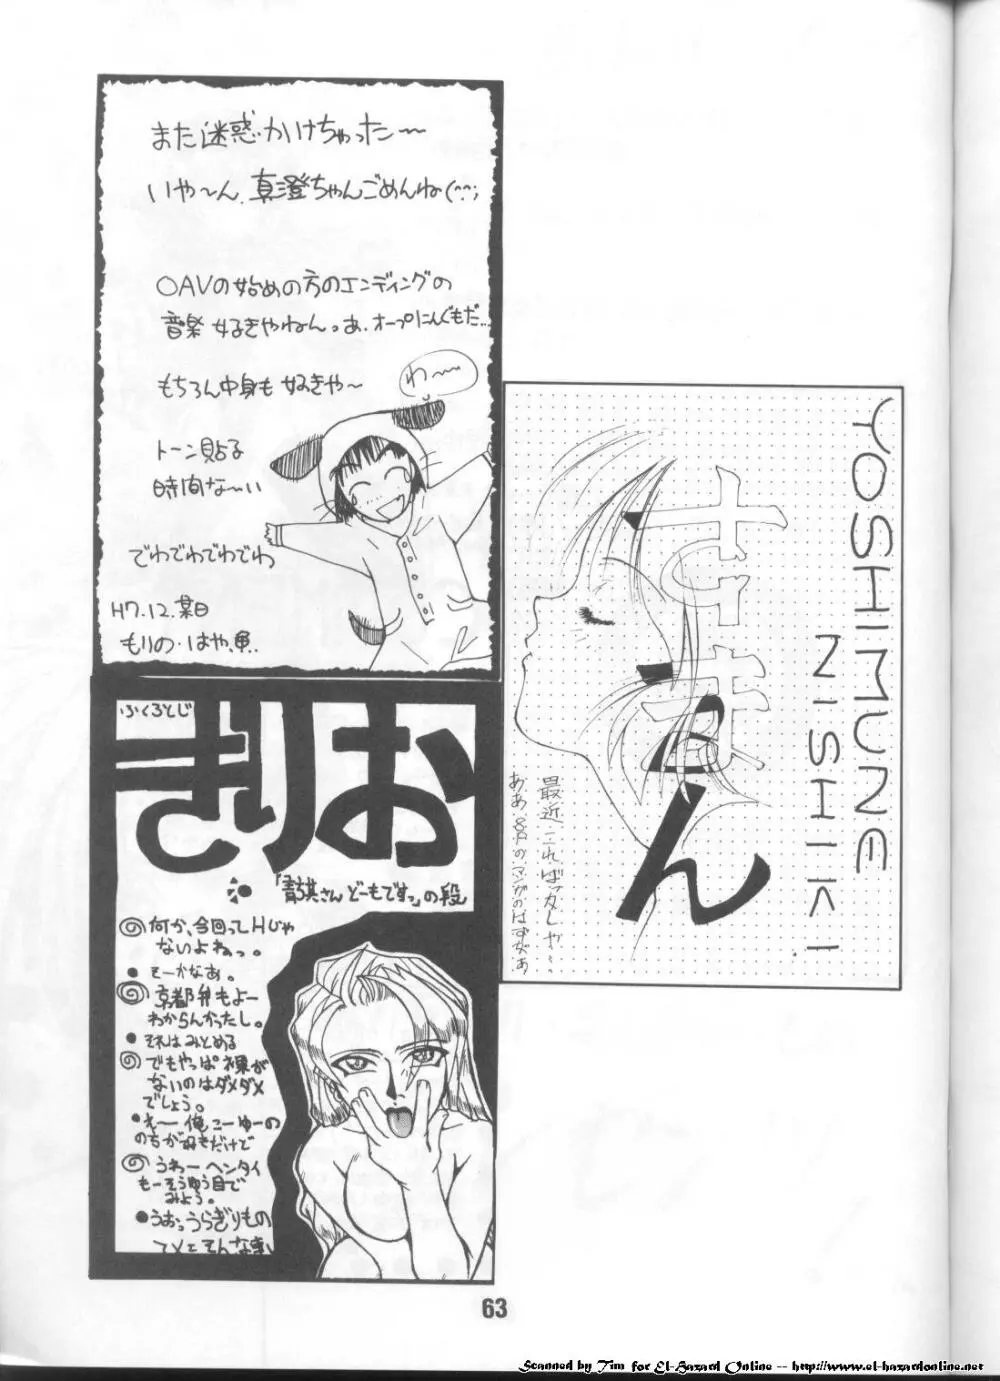 また迷惑かけちゃった〜
いや〜ん、真澄ちゃんごめんね(^^;
OAVの始めの方のエンディングの
音楽 好きやねん。あ、オープにんぐもだ…
もちろん中身も 好きや〜
わ〜〜
トーン貼る
時間な〜い
でわでわでわでわ
H7.12.某日
もりの・はや
YOSHIMUNE
NISHIKI
最近こればっかしや〜。
ああ8Pのマンガのはずがぁ
ふくろとじ
おりぎ
さん どーもですっ」の段
何か、今回ってHじゃ
ないよねっ。
●そーかなあ。
京都弁もよー
わからんかったし。
●それはみとめる
でもやっぱ裸が
ないのはダメダメ
でしょう。
●え〜俺こーゆーの
のちが好きだけど
うわーヘンタイ
もーそうゆう目で
みよう。
●うおっうらぎりもの
63
Scanned by Tim for El-Hazard Online -- http://www.el-hazardonline.net